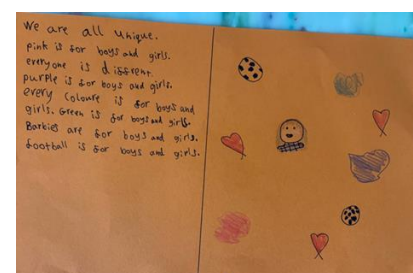 We are all unique.
pink is for boys and girls.
everyone is different.
purple is for boys and girls.
every coloure is for boys and
girls. Green is for boys and girls.
Barbies are for boys and girls.
football is for boys and girls.